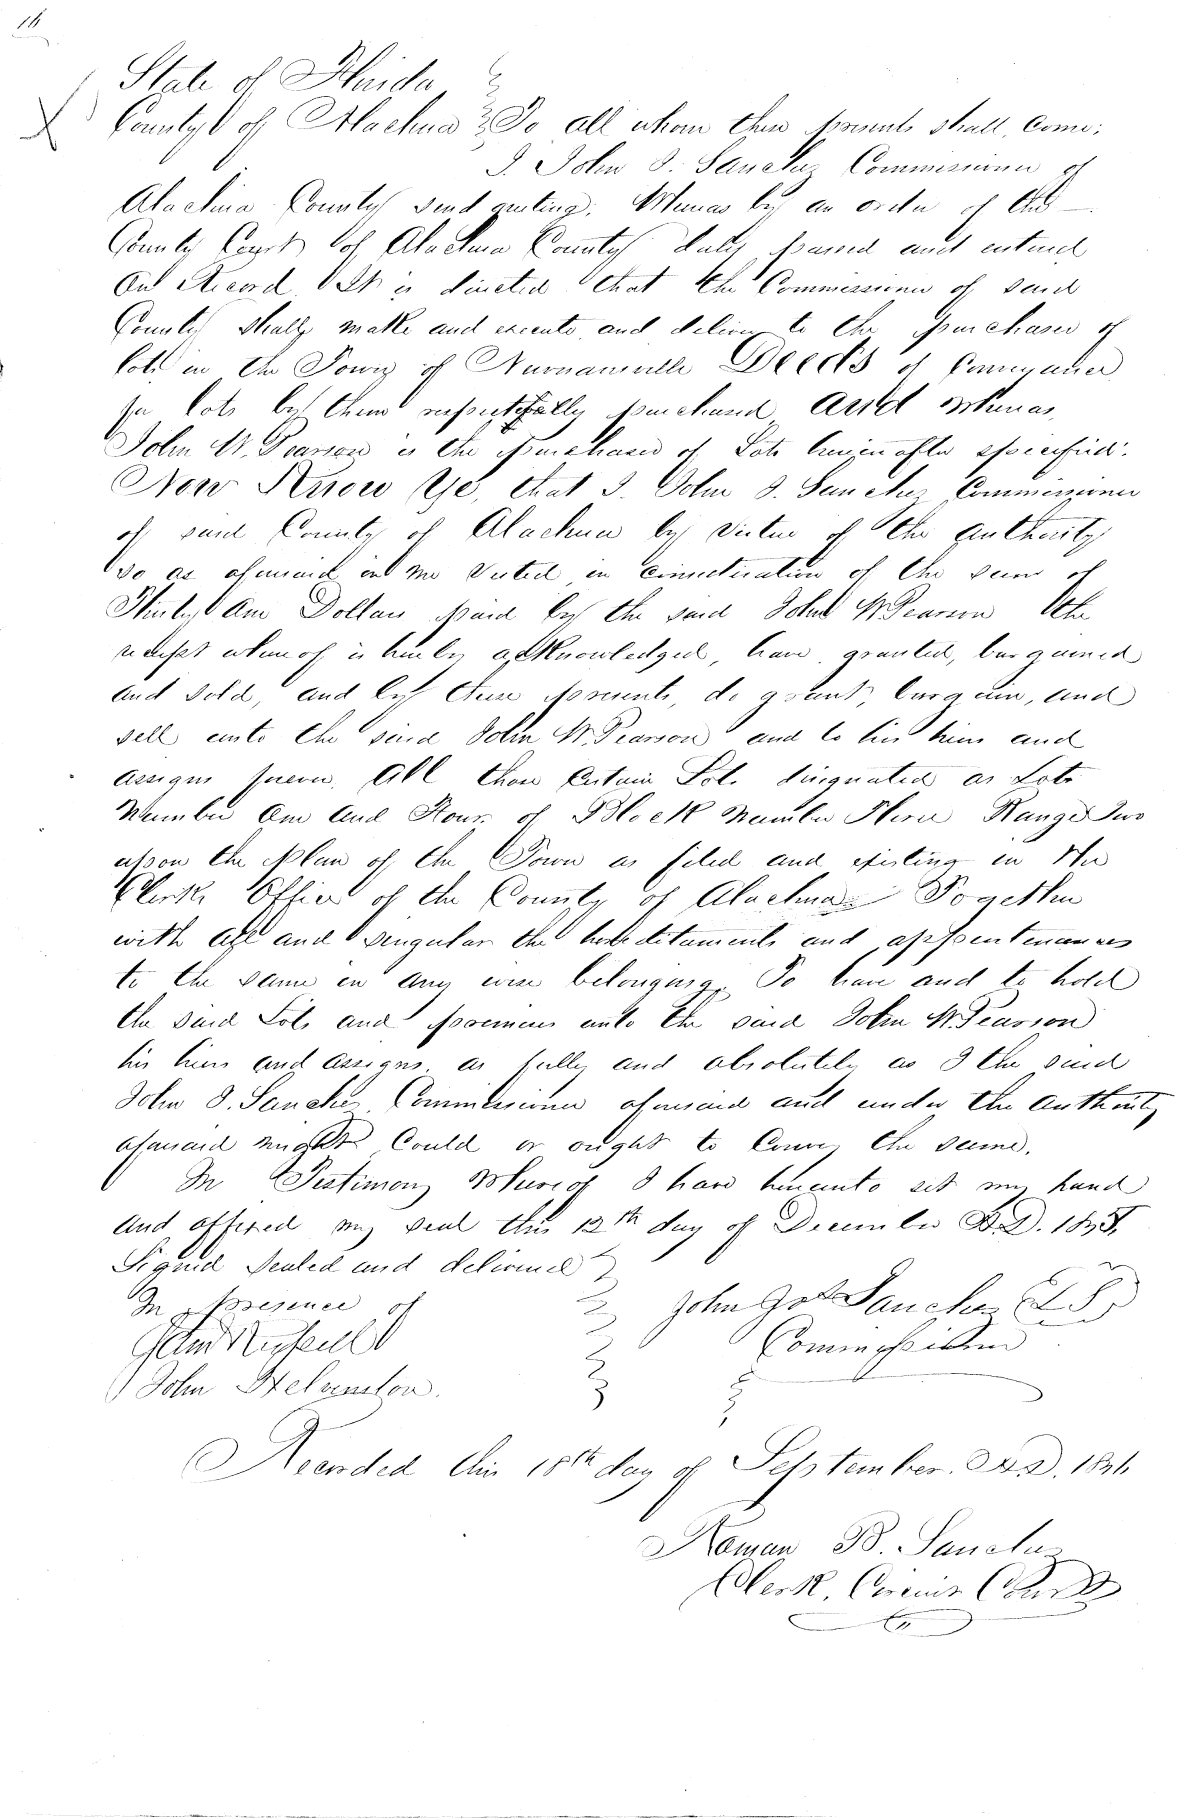 State of Florida
County of Alachua To all whom these presents shall come:
I. John J. Sanchez Commissioner of
Alachua County send greeting. Whereas by an order of the
County Court of Alachua County duly passed and entered
on Record It is directed that the Commissioner of said
County shall make and execute and deliver to the purchaser of
lots in the Town of Newnansville Deeds of Conveyance
for lots by them respectfully purchased and Whereas,
John W. Pearson is the purchaser of Lots hereinafter specified.
Now Know Ye, that I. John J. Sanchez Commissioner
of said County of Alachua by virtue of the authority
so as aforesaid in me vested in consideration of the sum of
Thirty One Dollars paid by the said John W Pearson the
receipt whereof is hereby acknowledged, have granted, bargained
and sold, and by these presents, do grant, bargain, and
sell unto the said John W. Pearson and to his heirs and
assigns forever. All those certain Lots designated as Lots
Number One and Four of Block Number Three Range Two
upon the plan of the Town as filed and existing in the
Clerks Office of the County of Alachua Together
with all and singular the hereditaments and appurtenances
to the same in any wise belonging. To have and to hold
the said Lots and premises unto the said John W. Pearson
his heirs and assigns. as fully and absolutely as I the said
John J. Sanchez Commissioner aforesaid and under the authority
aforesaid might could or ought to convey the same.
In Testimony Whereof I have hereunto set my hand
and affixed my seal this 12th day of December A.D.
Signed Sealed and delivered
In presence of John Sanchez (L.S.)
Commissioner
John Helvenston.
Recorded this 18th day of September. A.D.
Roman B. Sanchez
Clerk. Circuit Court